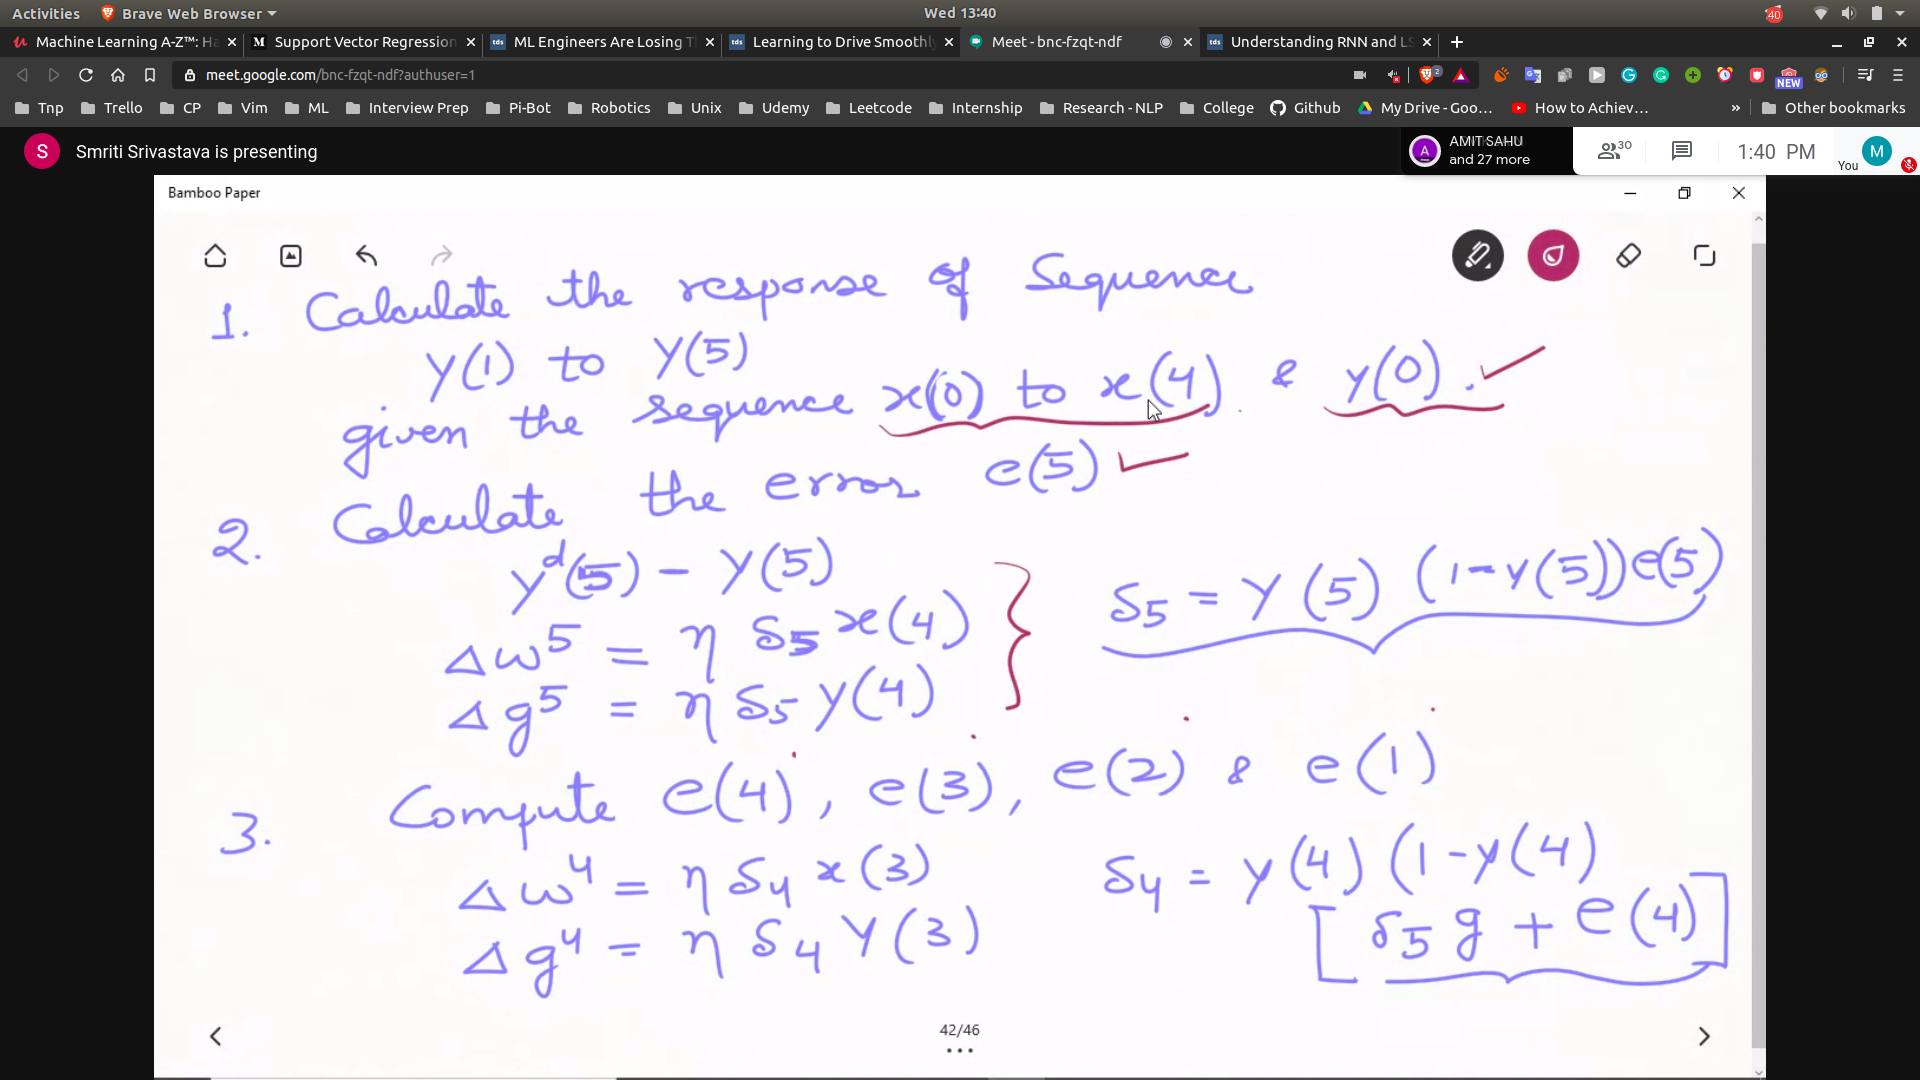 Activities Brave Web Browser Wed 13:40 40
Machine Learning A-Z™: Ha Support Vector Regression ML Engineers Are Losing T Learning to Drive Smoothly Meet - bnc-fzqt-ndf Understanding RNN and LS
meet.google.com/bnc-fzqt-ndf?authuser=1 2 NEW
Tnp Trello CP Vim ML Interview Prep Pi-Bot Robotics Unix Udemy Leetcode Internship Research - NLP College Github My Drive - Goo... How to Achiev... » Other bookmarks
S Smriti Srivastava is presenting
A AMIT SAHU
and 27 more
30
1:40 PM
You M
Bamboo Paper
1. Calculate the response of Sequence
y(1) to y(5)
given the sequence x(0) to x(4) & y(0).
2. Calculate the error e(5)
y^d(5) - y(5)
Δw^5 = η δ5 x(4)
Δg^5 = η δ5 y(4)
δ5 = y(5) (1-y(5))e(5)
3. Compute e(4), e(3), e(2) & e(1)
Δw^4 = η δ4 x(3)
Δg^4 = η δ4 y(3)
δ4 = y(4) (1-y(4)
[δ5 g + e(4)]
42/46